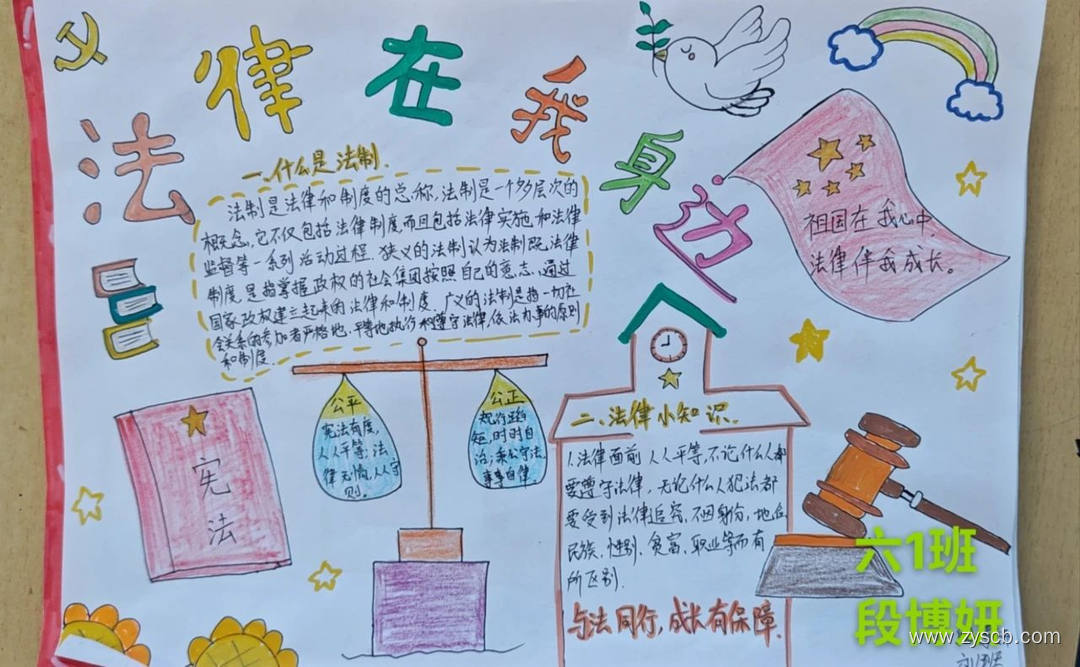 法律在我身边
一、什么是法制.
法制是法律和制度的总称,法制是一个多层次的
概念,它不仅包括法律制度,而且包括法律实施和法律
监督等一系列活动过程.狭义的法制认为法制既法律
制度,是指掌握政权的社会集团按照自己的意志、通过
国家政权建立起来的法律和制度.广义的法制是指一切社
会关系的参加者严格地、平等地执行和遵守法律,依法办事的原则
和制度.
祖国在我心中,
法律伴我成长。
公平
宪法有度,
人人平等;法
律无情,人人守
则。
公正
短,时时自
治;秉公守法
事事自律。
宪
法
二、法律小知识.
1.法律面前人人平等,不论什么人都
要遵守法律,无论什么人犯法都
要受到法律追究,不因身份,地位,
民族,性别,贫富,职业等而有
所区别.
与法同行,成长有保障.
六1班
段博妍
www.zyscb.com